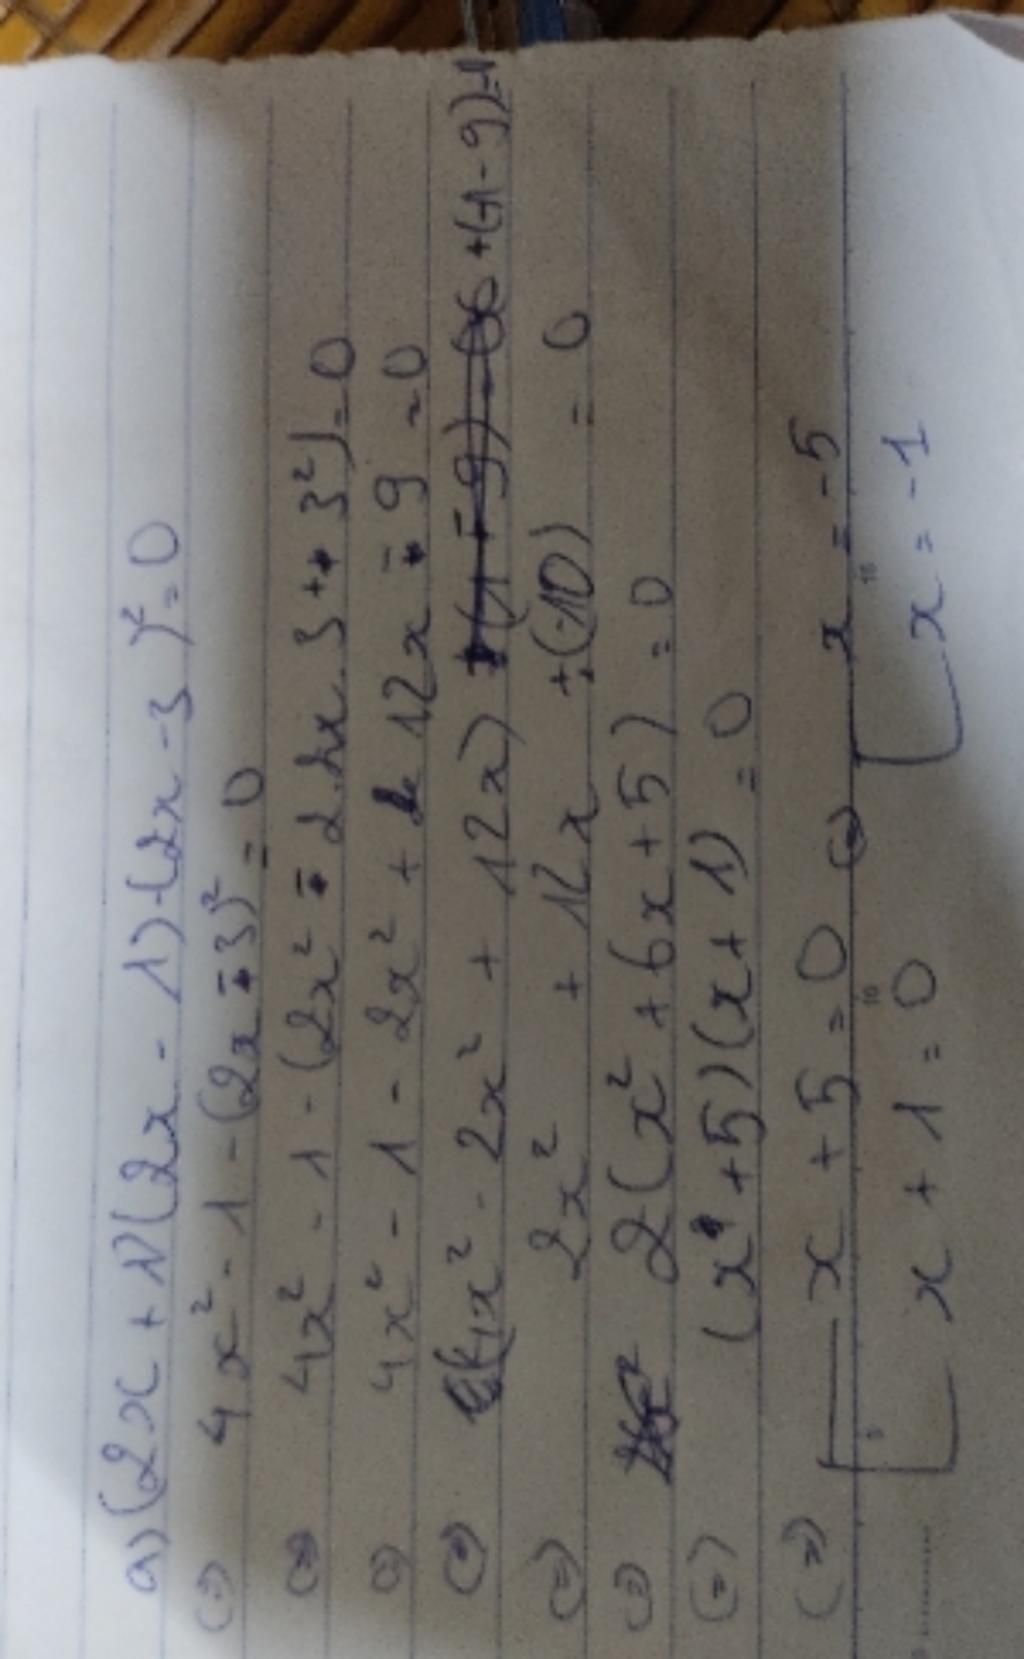 a) (2x + 1)(2x - 1) - (2x - 3)² = 0
(=) 4x² - 1 - (2x - 3)² = 0
(=) 4x² - 1 - (2x² - 2.2x.3 + 3²) = 0
(=) 4x² - 1 - 2x² + 12x - 9 = 0
(=) (4x² - 2x² + 12x) + (-1 - 9) =
(=) 2x² + 12x + (-10) = 0
(=) 2(x² + 6x + 5) = 0
(=) (x + 5)(x + 1) = 0
(=) [ x + 5 = 0 (=) [ x = -5
x + 1 = 0 x = -1